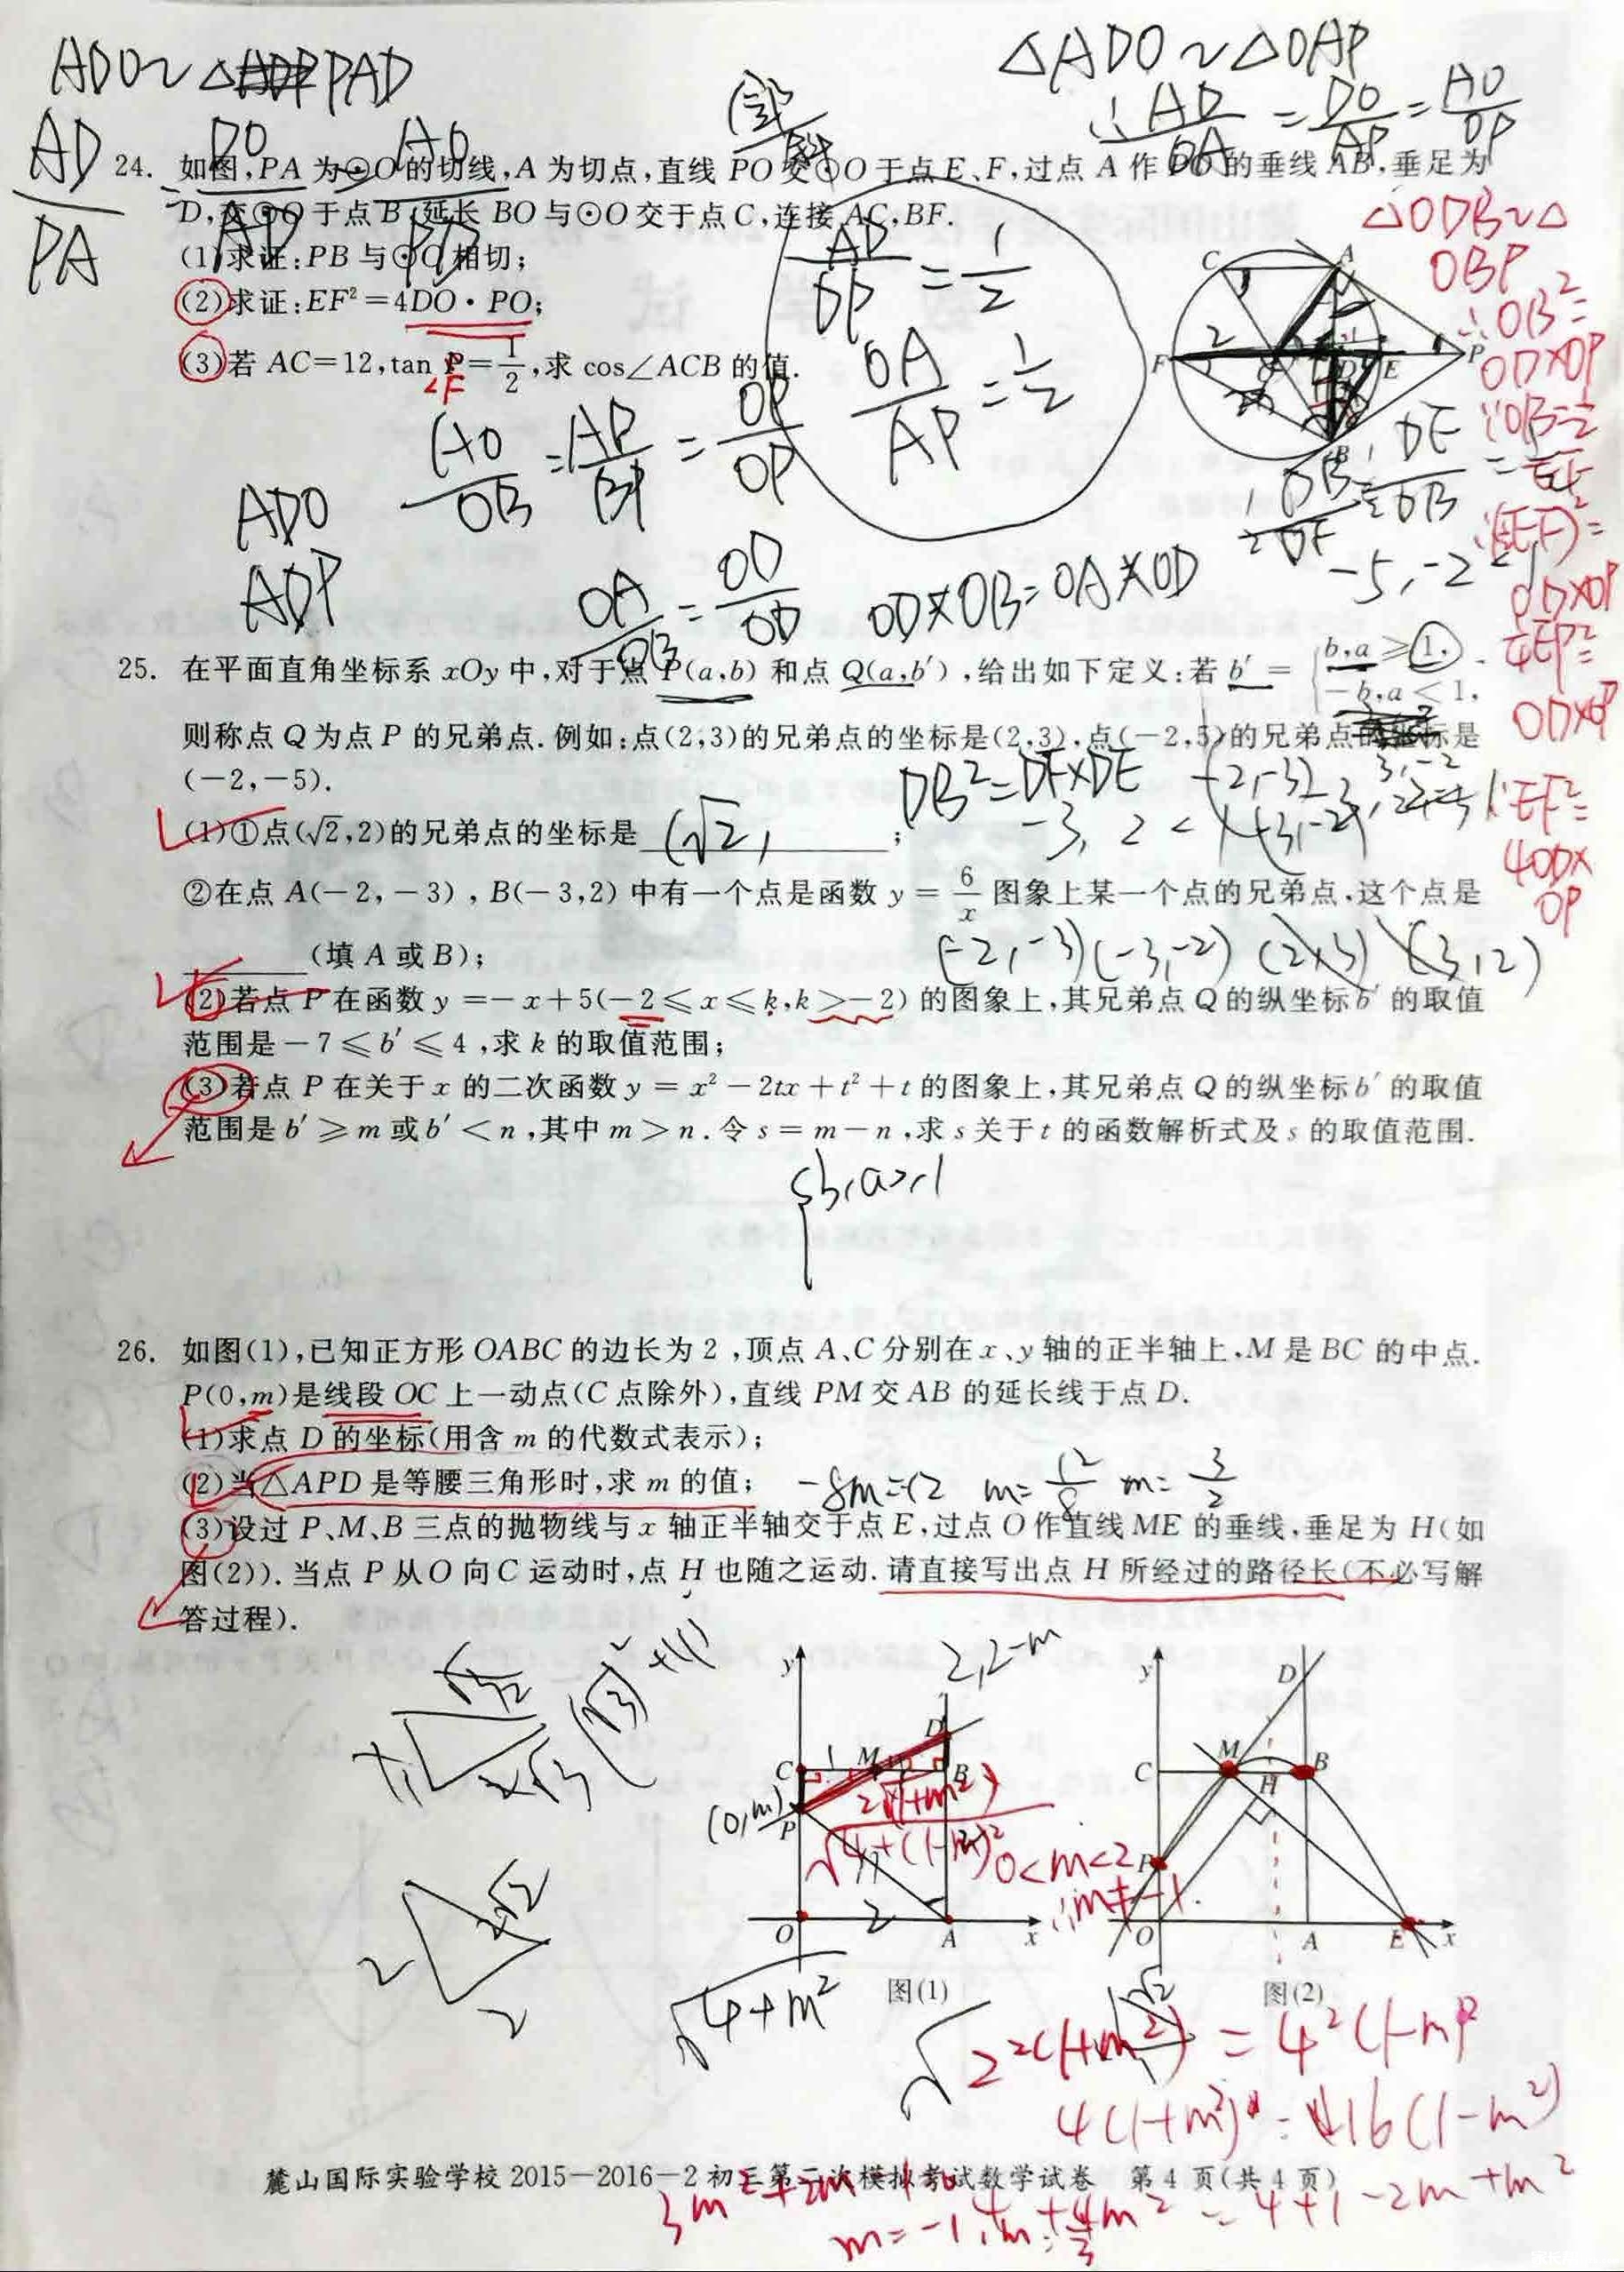 ADO∽△PAD
△ADO∽△OAP
∴AD/OA=DO/AP=AO/OP
AD/PA=DO/AD=AO/PD
24. 如图,PA为⊙O的切线,A为切点,直线PO交⊙O于点E、F,过点A作PO的垂线AB,垂足为
D,交⊙O于点B,延长BO与⊙O交于点C,连接AC,BF.
(1)求证:PB与⊙O相切;
(2)求证:EF²=4DO·PO;
(3)若AC=12,tan F=1/2,求cos∠ACB的值.
∠F
AD/DP=1/2
OA/AP=1/2
C
A
F
O
D
E
P
B
△ODB∽△
OBP
∴OB²=
OD×OP
OD×OP
OD×OP
∴EF²=
4OD×
OP
AO/OB=AP/BP=OP/OP
ADO
ADP
OA/OB=OD/OD
OD×OB=OA×OD
-5,-2<1
25. 在平面直角坐标系xOy中,对于点P(a,b)和点Q(a,b′),给出如下定义:若b′={b,a≥1,
-b,a<1,
则称点Q为点P的兄弟点.例如:点(2,3)的兄弟点的坐标是(2,3),点(-2,5)的兄弟点的坐标是
(-2,-5).
DB²=DF×DE
(1)①点(√2,2)的兄弟点的坐标是 (√2, ;
②在点A(-2,-3),B(-3,2)中有一个点是函数y=6/x图象上某一个点的兄弟点,这个点是
(-2,-3)(-3,-2)(2,3)(3,2)
______(填A或B);
(2)若点P在函数y=-x+5(-2≤x≤k,k>-2)的图象上,其兄弟点Q的纵坐标b′的取值
范围是-7≤b′≤4,求k的取值范围;
(3)若点P在关于x的二次函数y=x²-2tx+t²+t的图象上,其兄弟点Q的纵坐标b′的取值
范围是b′≥m或b′<n,其中m>n.令s=m-n,求s关于t的函数解析式及s的取值范围.
{b,a≥1
26. 如图(1),已知正方形OABC的边长为2,顶点A、C分别在x、y轴的正半轴上,M是BC的中点.
P(0,m)是线段OC上一动点(C点除外),直线PM交AB的延长线于点D.
(1)求点D的坐标(用含m的代数式表示);
(2)当△APD是等腰三角形时,求m的值; -8m=-12 m=12/8 m=3/2
(3)设过P、M、B三点的抛物线与x轴正半轴交于点E,过点O作直线ME的垂线,垂足为H(如
图(2)).当点P从O向C运动时,点H也随之运动.请直接写出点H所经过的路径长(不必写解
答过程).
2,2-m
y
D
C
1
M
B
(0,m)
P
O
2
A
x
0<m<2
∴m≠-1.
y
D
C
M
B
H
P
O
A
E
x
2
2√2
2
√4+m²
图(1)
图(2)
√2²(1+m²)=4²(1-m)²
4(1+m²)=16(1-m²)
麓山国际实验学校2015-2016-2初三第二次模拟考试数学试卷 第4页(共4页)
4+4m²=4+1-2m+m²